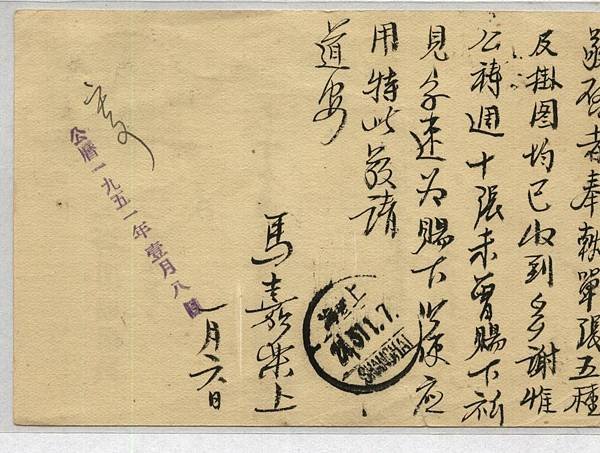 敬啓者奉單張五種
及掛图均已收到多謝惟
公禱週十張未曾賜下祈
見字速为賜下以候应
用特此敬請
道安
馬嘉樂上
一月六日
上海
51.1.7.
SHANGHAI
公曆一九五一年壹月八日